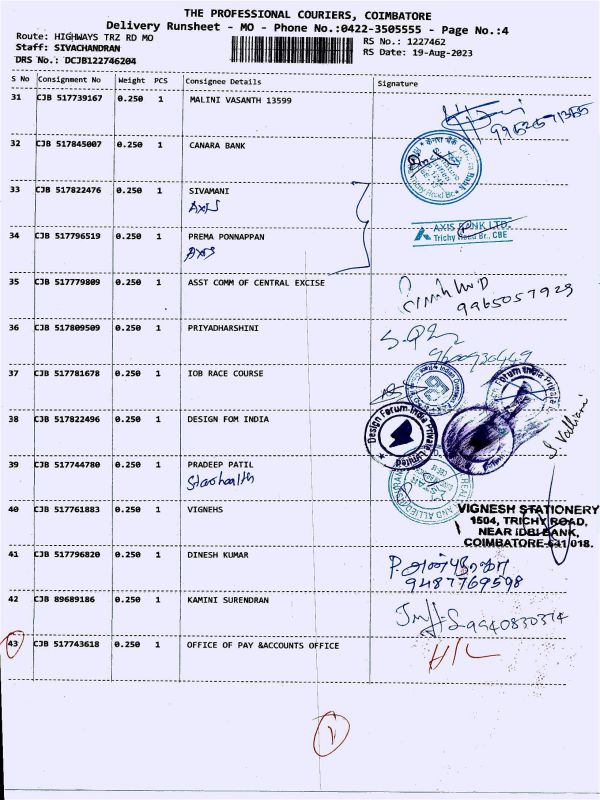 THE PROFESSIONAL COURIERS, COIMBATORE
Delivery Runsheet - MO - Phone No.:0422-3505555 - Page No.:4
Route: HIGHWAYS TRZ RD MO
RS No.: 1227462
Staff: SIVACHANDRAN
RS Date: 19-Aug-2023
DRS No.: DCJB122746204
S No Consignment No Weight PCS Consignee Details Signature
31 CJB 517739167 0.250 1 MALINI VASANTH 13599
32 CJB 517845007 0.250 1 CANARA BANK
Trichy Road Br.
33 CJB 517822476 0.250 1 SIVAMANI
AXIS
AXIS BANK LTD.
Trichy Road Br., CBE
34 CJB 517796519 0.250 1 PREMA PONNAPPAN
AXIS
35 CJB 517779809 0.250 1 ASST COMM OF CENTRAL EXCISE
9965057929
36 CJB 517809509 0.250 1 PRIYADHARSHINI
9600930449
37 CJB 517781678 0.250 1 IOB RACE COURSE
38 CJB 517822496 0.250 1 DESIGN FOM INDIA
Design Forum India Private Limited
S. Valliani
39 CJB 517744780 0.250 1 PRADEEP PATIL
Starhealth
40 CJB 517761883 0.250 1 VIGNEHS
VIGNESH STATIONERY
1504, TRICHY ROAD,
NEAR IDBI BANK,
COIMBATORE-641 018.
41 CJB 517796820 0.250 1 DINESH KUMAR
9487769598
42 CJB 89689186 0.250 1 KAMINI SURENDRAN
9940830374
43 CJB 517743618 0.250 1 OFFICE OF PAY &ACCOUNTS OFFICE
H/L